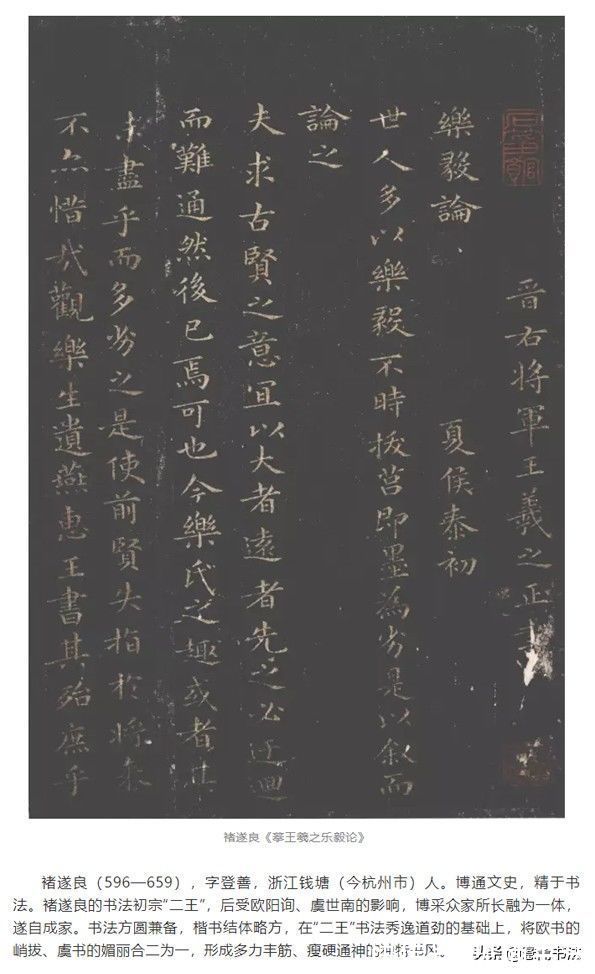 晉右将軍王羲之正書
樂毅論 夏侯泰初
世人多以樂毅不時拔莒即墨為劣是以叙而
論之
夫求古賢之意宜以大者遠者先之必迂迴
而難通然後已焉可也今樂氏之趣或者其
未盡乎而多劣之是使前賢失指於將来
不亦惜哉觀樂生遺燕惠王書其殆庶乎
褚遂良《摹王羲之乐毅论》
褚遂良（596—659），字登善，浙江钱塘（今杭州市）人。博通文史，精于书
法。褚遂良的书法初宗“二王”，后受欧阳询、虞世南的影响，博采众家所长融为一体，
遂自成家。书法方圆兼备，楷书结体略方，在“二王”书法秀逸遒劲的基础上，将欧书的
峭拔、虞书的媚丽合二为一，形成多力丰筋、瘦硬通神的独特书风。
头条 书法